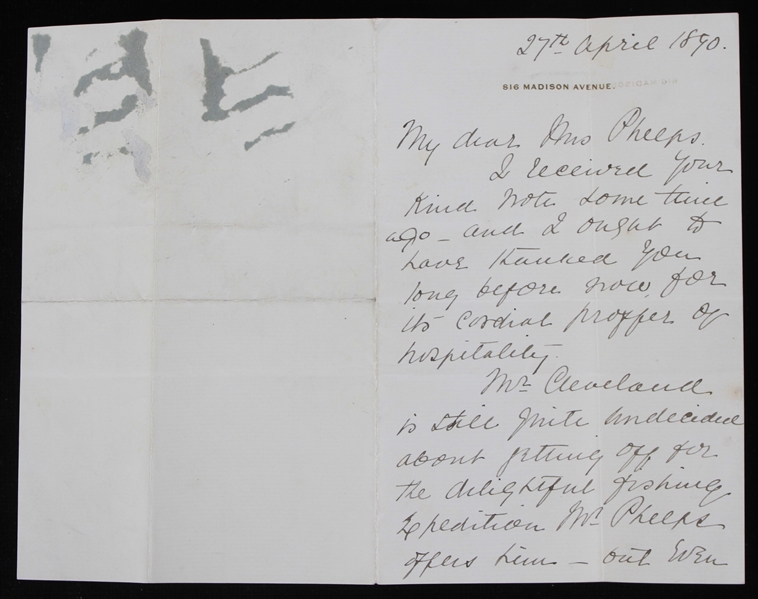 27th April 1890.
816 MADISON AVENUE.
My dear Mrs Phelps.
I received your
kind note some time
ago – and I ought to
have thanked you
long before now for
its cordial proffer of
hospitality.
Mr. Cleveland
is still quite undecided
about getting off for
the delightful fishing
expedition Mr. Phelps
offers him – but even